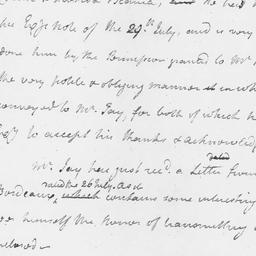 the Exys note of the 29th July, and is very
done him by the Permission granted to Mr
the very noble & obliging manner in which
conveyed to Mr. Jay, for both of which he
Exy to accept his thanks & acknowledg
dated
Mr. Jay has just recd. a Letter from
said the 26 July. as it
Bordeaux, which contains some interesting
himself the honor of transmitting
enclosed—